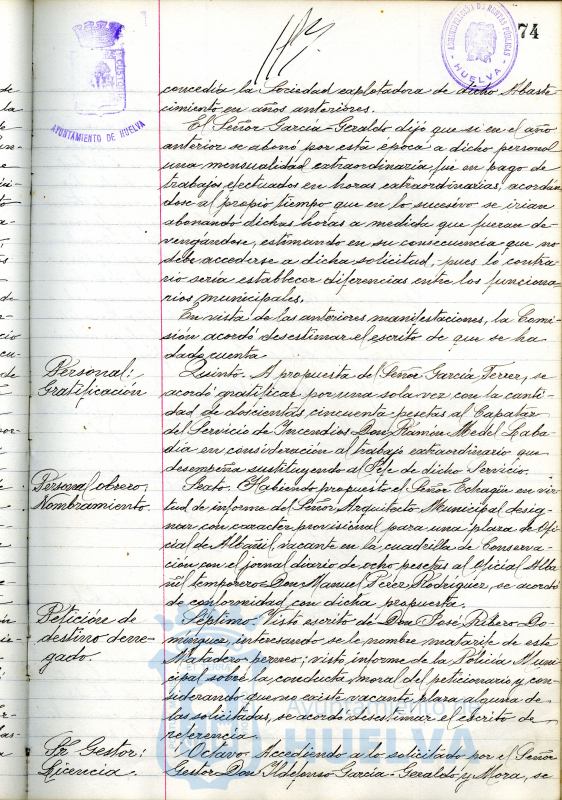 74
AYUNTAMIENTO DE HUELVA
HUELVA
concedia la Sociedad explotadora de dicho Abaste-
cimiento en años anteriores.
El Señor García-Geraldo dijó que si en el año
anterior se abonó por esta época a dicho personal
una mensualidad extraordinaria, fué en pago de
trabajos efectuados en horas extraordinarias, acordán
dose al propio tiempo que en lo sucesivo se irian
abonando dichas horas a medida que fueran de-
vengándose, estimando en su consecuencia que no
debe accederse a dicha solicitud, pues lo contra-
rio sería establecer diferencias entre los funciona-
rios municipales.
En vista de las anteriores manifestaciones, la Comi-
sión acordó desestimar el escrito de que se ha
dado cuenta.
Personal:
Gratificación
Quinto. A propuesta del Señor García Ferrer, se
acordó gratificar por una sola vez con la canti-
dad de doscientas cincuenta pesetas al Capataz
del Servicio de Incendios Don Ramón Medel Laba-
dia en consideración al trabajo extraordinario que
desempeña sustituyendo al Jefe de dicho Servicio.
Personal obrero,
Nombramiento.
Sexto. Habiendo propuesto el Señor Echagüe en vir-
tud de informe del Señor Arquitecto Municipal desig-
nar con caracter provisional para una plaza de Ofi-
cial de Albañil, vacante en la cuadrilla de Conserva-
ción con el jornal diario de ocho pesetas al Oficial Alba-
ñil temporero Don Manuel Pérez Rodríguez, se acordó
de conformidad con dicha propuesta.
Petición de
destino dene-
gado.
Septimo. Visto escrito de Don José Ribero Do-
mínguez, interesando se le nombre matarife de este
Matadero; visto informe de la Policia Muni-
cipal sobre la conducta moral del peticionario y con-
siderando que no existe vacante plaza alguna de
las solicitadas, se acordó desestimar el escrito de
referencia.
Ayuntamiento de
HUELVA
Sr. Gestor:
Licencia.
Octavo. Accediendo a lo solicitado por el Señor
Gestor Don Ildefonso García-Geraldo y Mora, se